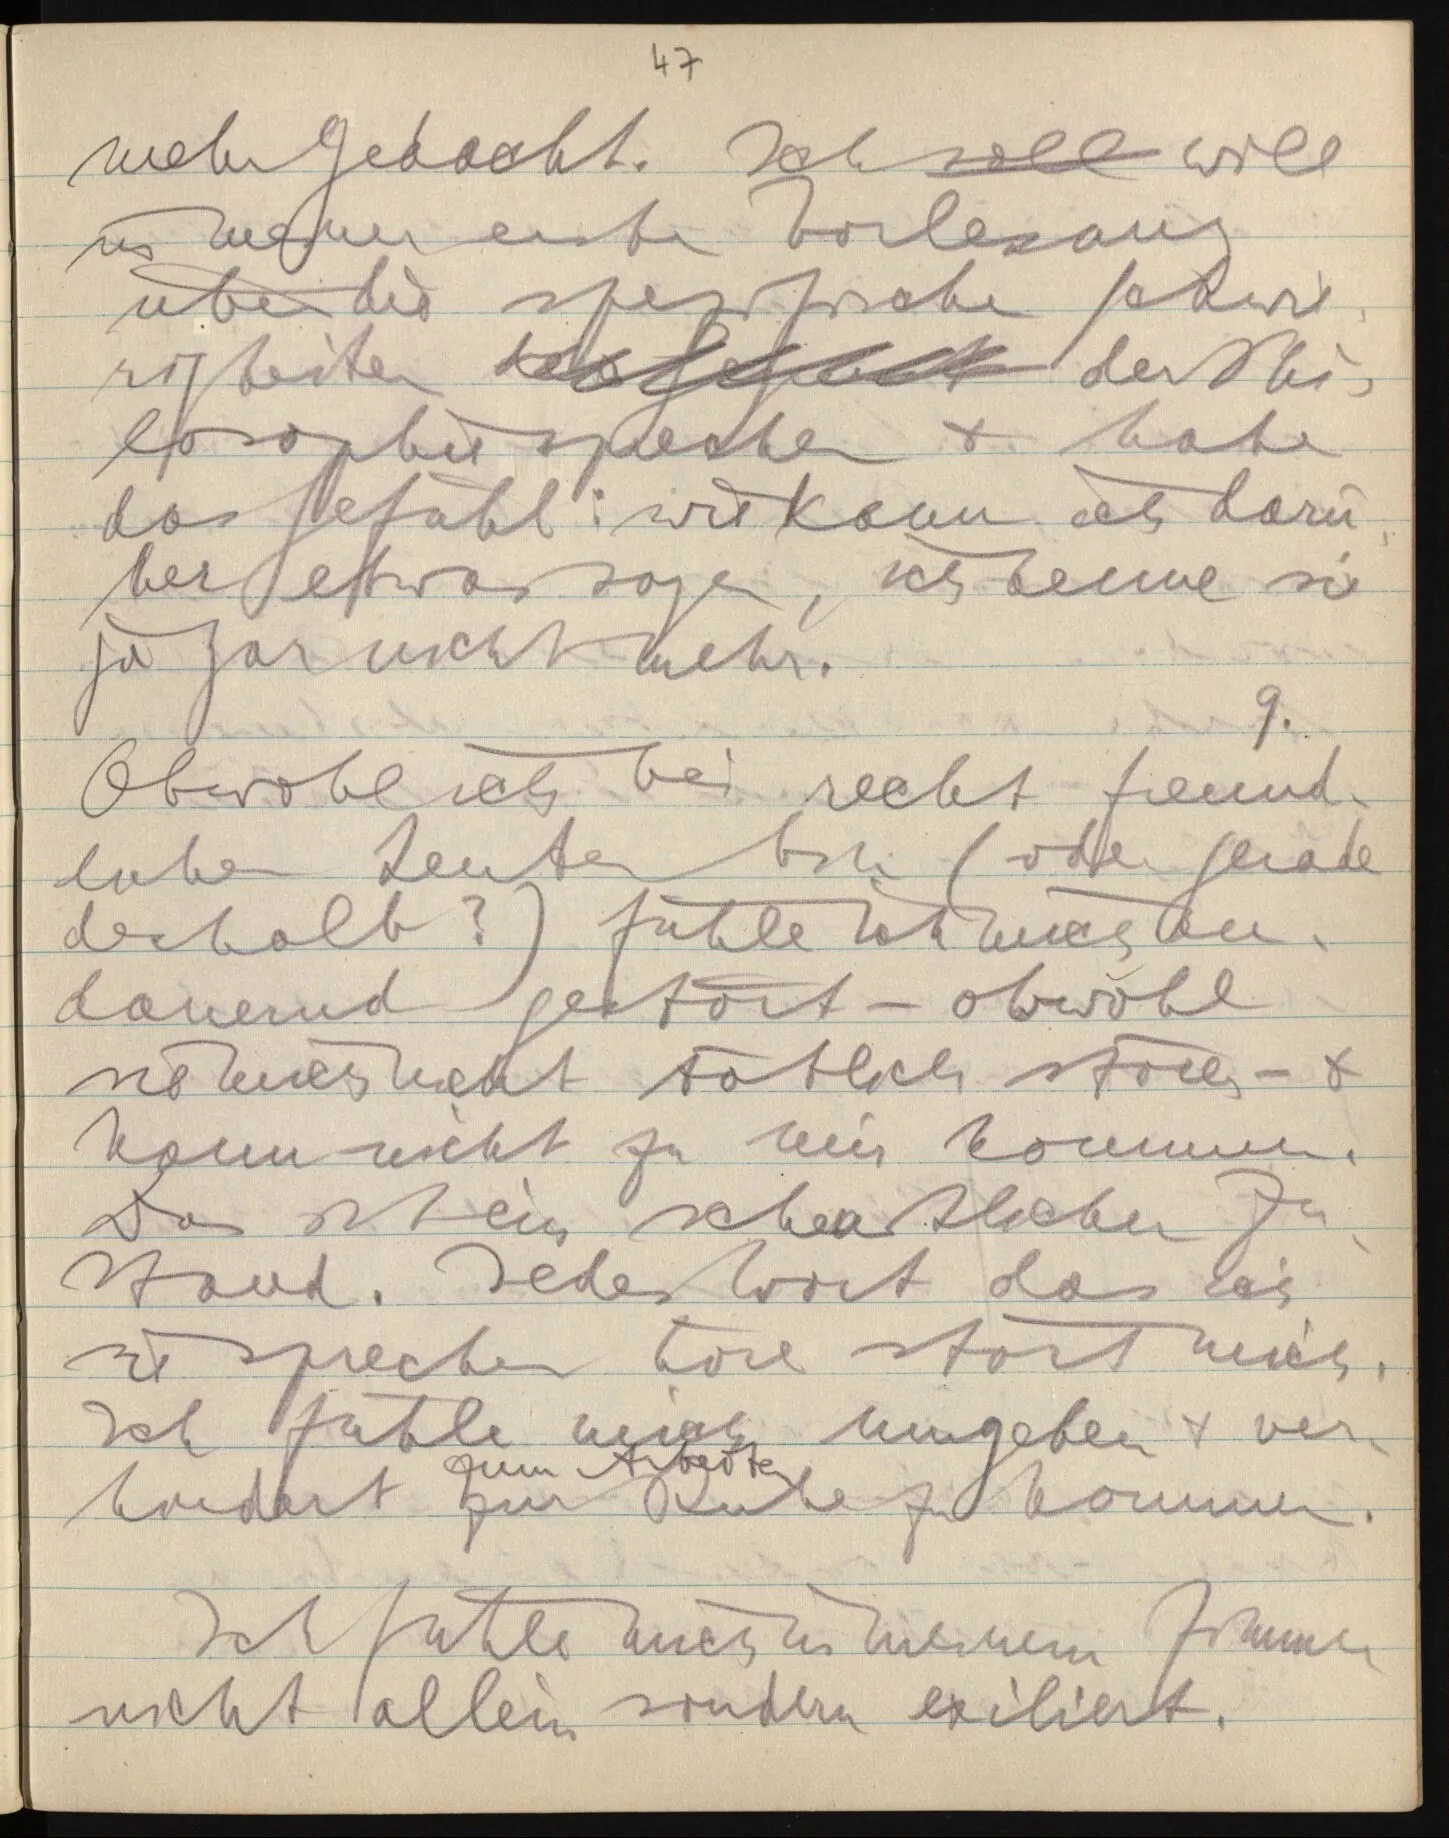 47
mehr gedacht. Ich soll will
in meiner ersten Vorlesung
über die spezifischen Schwie-
rigkeiten der Phi-
losophie sprechen & habe
das Gefühl: wie kann ich darü-
ber etwas sagen, ich kenne sie
ja gar nicht mehr.
9.
Obwohl ich bei recht freund-
lichen Leuten bin (oder gerade
deshalb?) fühle ich mich an-
dauernd gestört – obwohl
sie mich nicht tätlich stören – &
kann nicht zu mir kommen.
Das ist ein scheußlicher Zu-
stand. Jedes Wort das ich
sie sprechen höre stört mich.
Ich fühle mich umgeben & ver-
hindert
zum Arbeiten
zur Ruhe zu kommen.
Ich fühle mich in meinem Zimmer
nicht allein sondern exiliert.